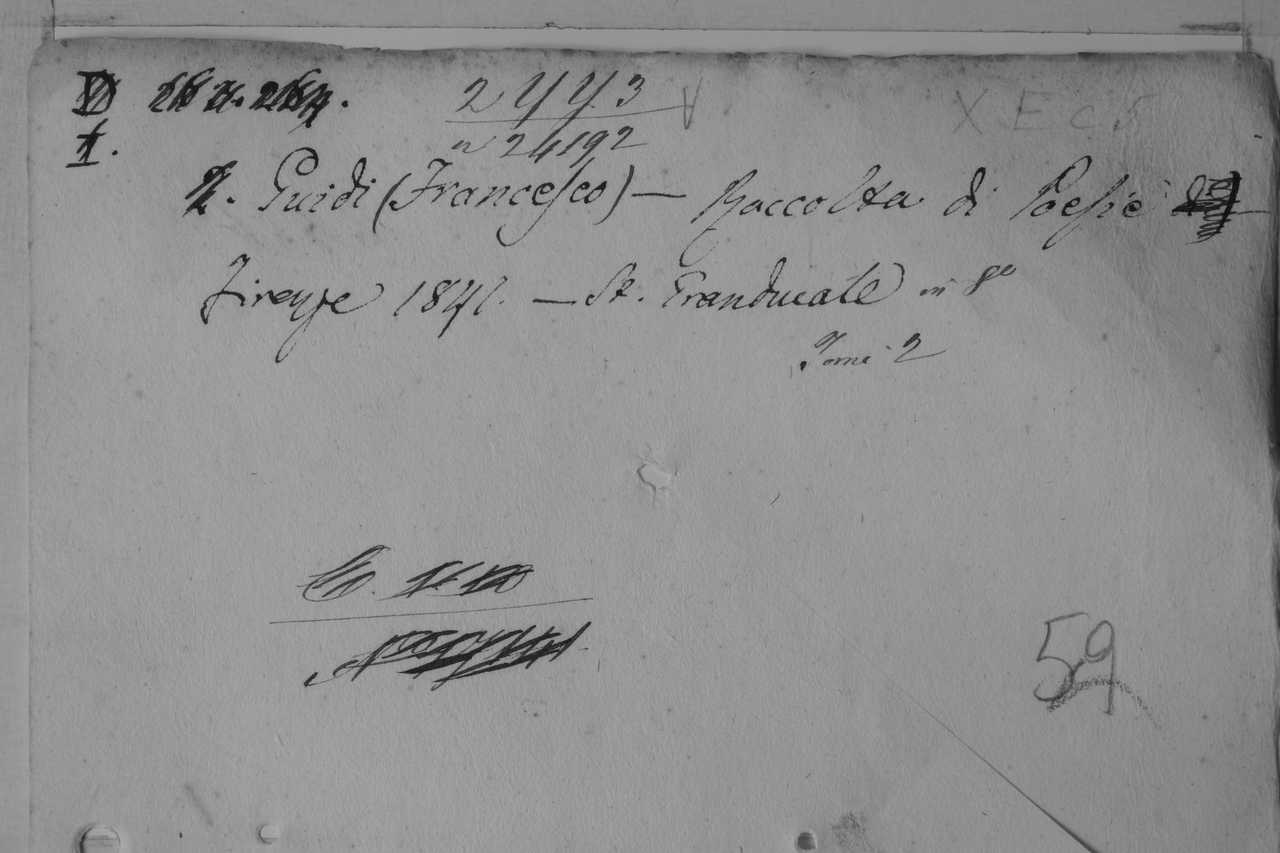 2443
X E c 5
n 24192
I.
2. Guidi (Francesco) — Raccolta di Poesie
Firenze 1841. — St. Granducale in 8º
Tomi 2
59